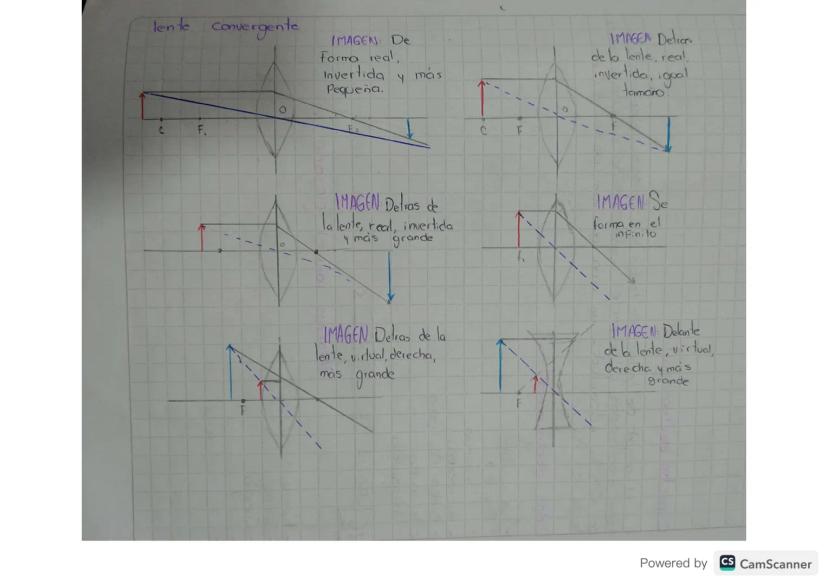 lente convergente
IMAGEN: De
forma real,
invertida y más
Pequeña.
O
C
F
F
IMAGEN Detras
de la lente, real,
invertida, igual
tamaño.
o
C
F
f
IMAGEN Detras de
la lente, real, invertida
y más grande
o
IMAGEN Se
forma en el
infinito
IMAGEN Detras de la
lente, virtual, derecha,
más grande
F
IMAGEN: Delante
de la lente, virtual,
derecha y más
grande
F
Powered by CS CamScanner